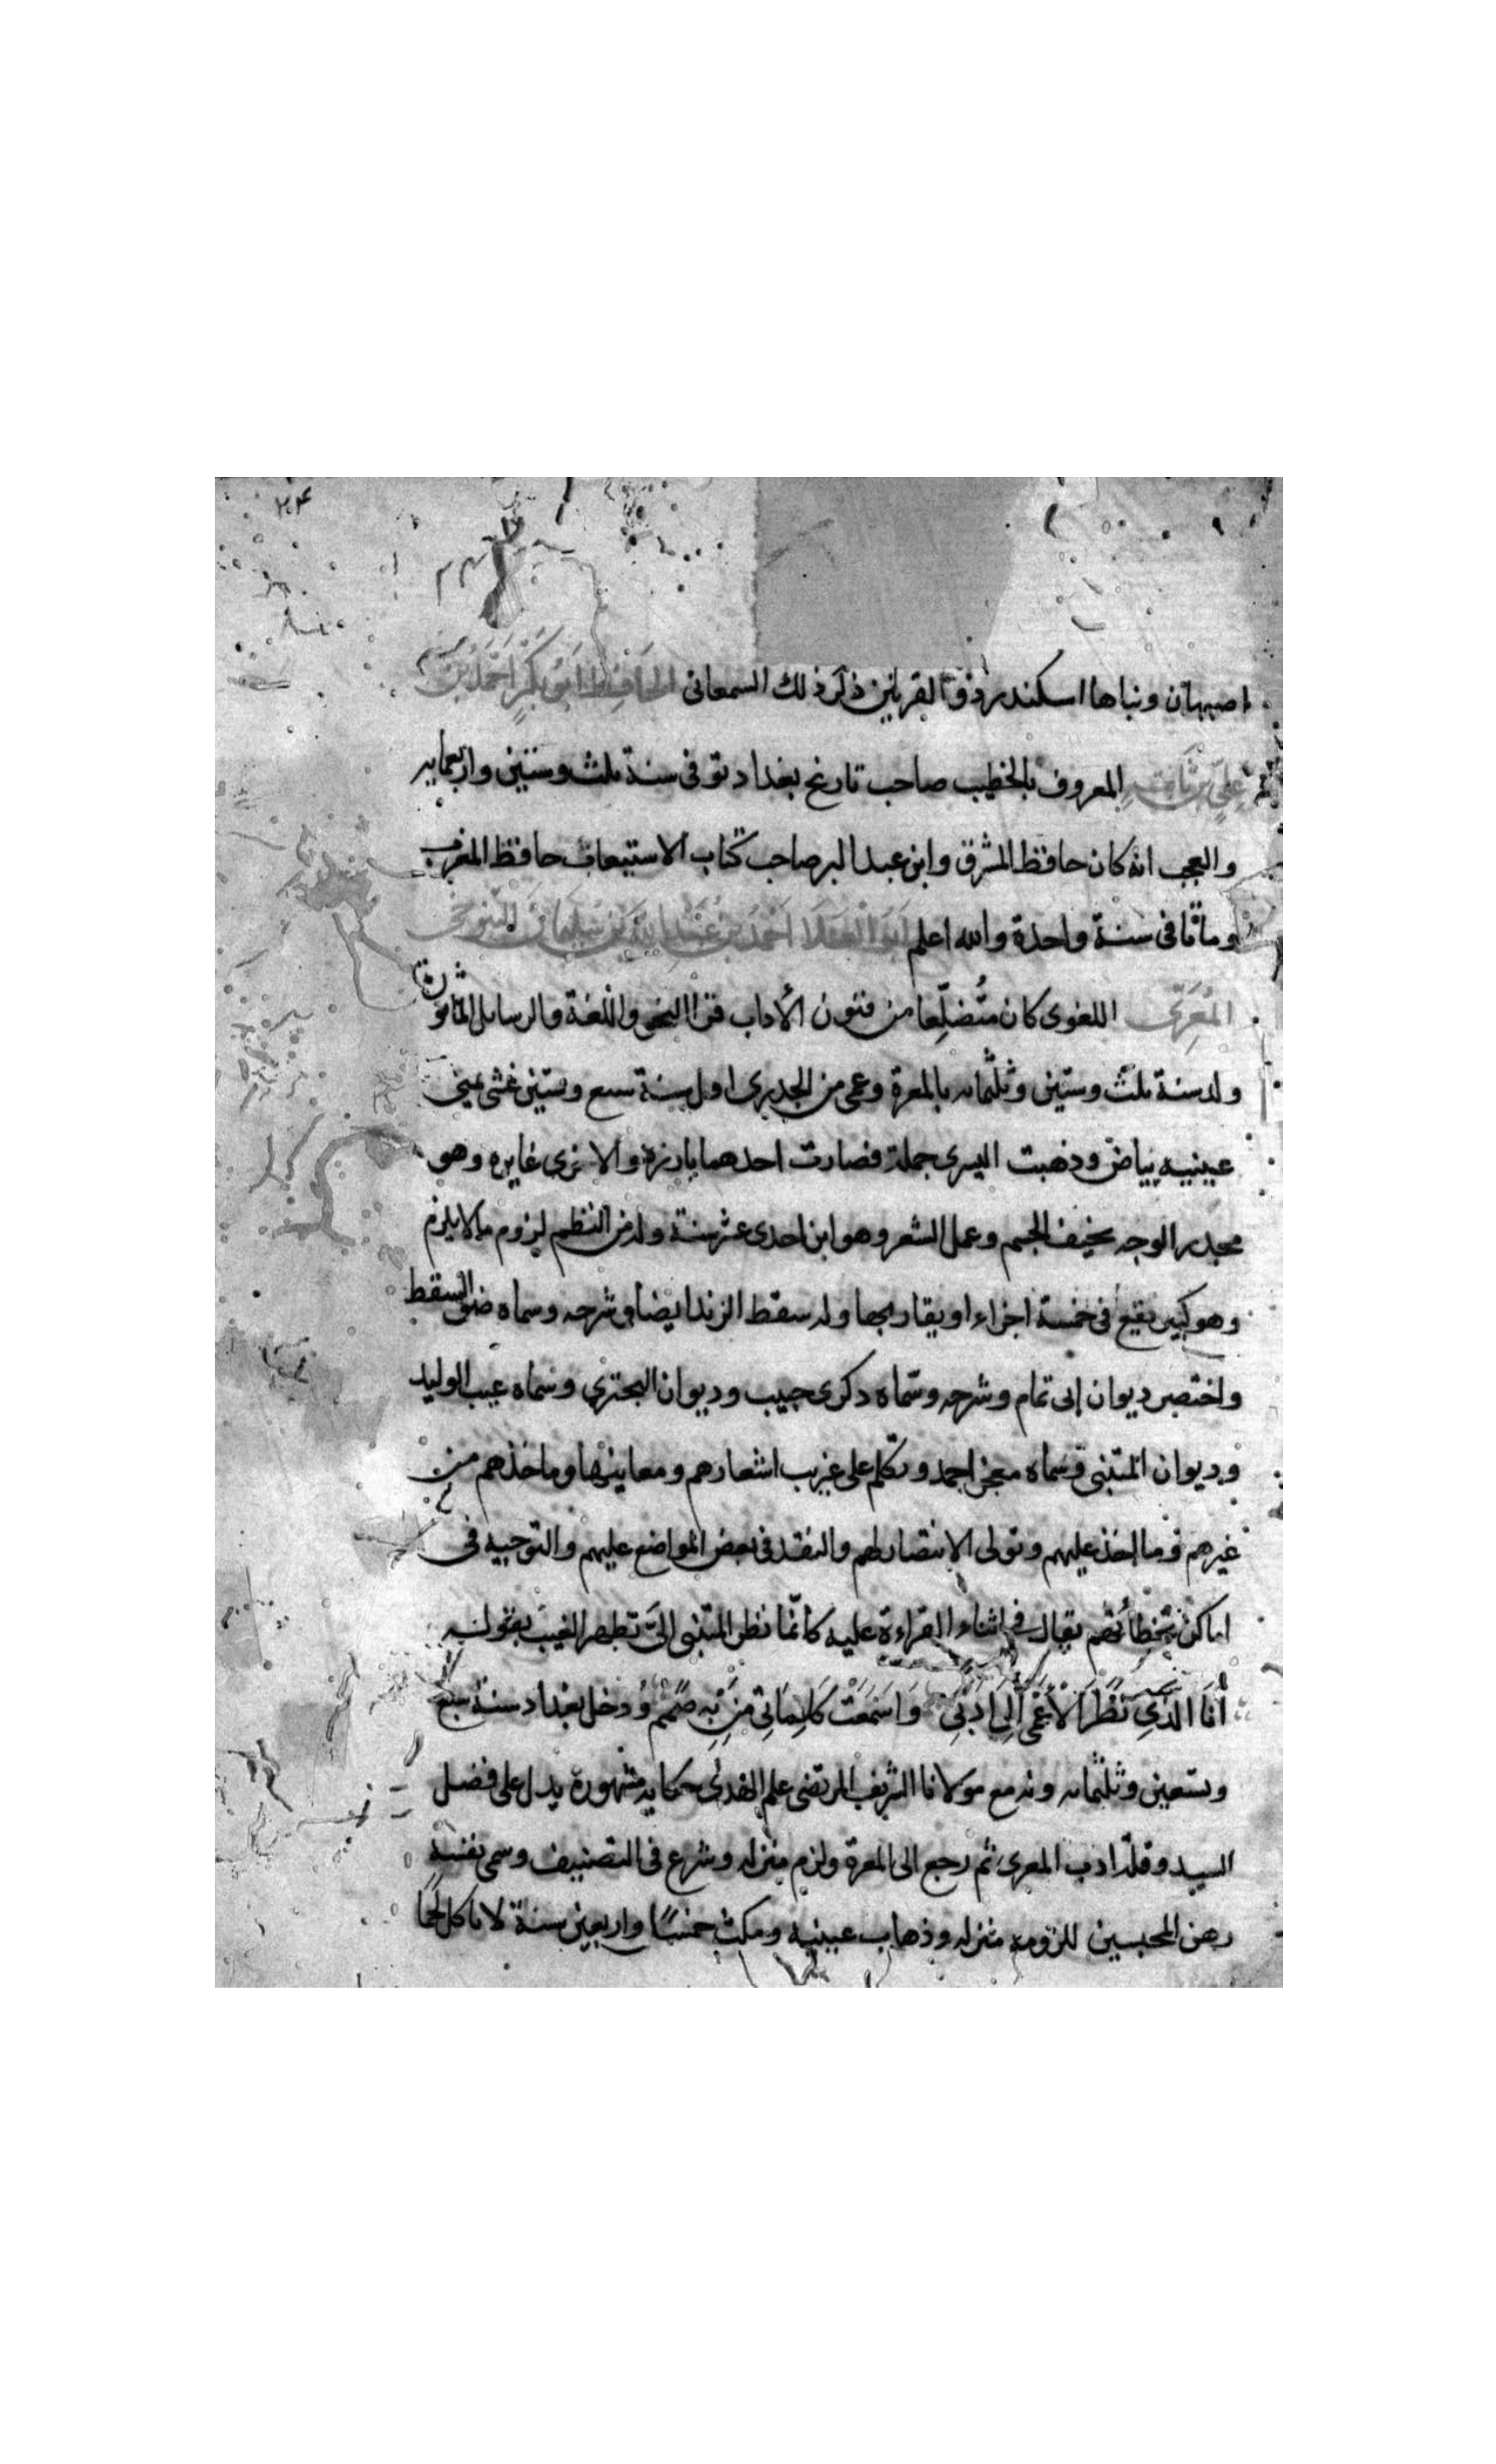 ٢٤
اصبهان وبناها اسكندر ذو القرنين ذكر ذلك السمعاني الحَافِظ اَبُو بَكْرٍ اَحْمَدُ بْنُ
عَلِيّ بن ثَابِتٍ المعروف بالخطيب صاحب تاريخ بغداد توفى سنة ثلث وستين واربعمايه
والعجب انه كان حافظ المشرق وابن عبد البر صاحب كتاب الاستيعاب حافظ المغرب
وماتا فى سنة واحدة والله اعلم اَبُو الْعَلَا اَحْمَد بن عَبْدِ اللهِ بن سُلَيْمَانَ التَّنُوخى
المُعَرِىّ اللغوى كان متُضلِّعا من فنون الأداب قرا النحو واللغة وله الرسايل الماثورة
ولد سنة ثلث وستين وثلثمايه بالمعرة وعمى من الجدرى اول سنة سبع وستين غشى يمنى
عينيه بياض وذهبت اليسرى جملة فصارت احدهما بارزة والاخرى غايره وهو
مجدر الوجه نحيف الجسم وعمل الشعر وهو ابن احدى عشر سنة وله من النظم لزوم ما لا يلزم
وهو كبير يقع فى خمسة اجزاء او يقاربها وله سقط الزند ايضا وشرحه وسماه ضو السقط
واختصر ديوان ابى تمام وشرحه وسمّاه ذكرى حبيب وديوان البحترى وسماه عبث الوليد
وديوان المتنبى وسماه معجز احمد وتكلم على غريب اشعارهم ومعاينها وماخذهم من
غيرهم وما اخذ عليهم وتولى الانتصار لهم والنقد فى بعض المواضع عليهم والتوجيه فى
اماكن تخطأئهم يقال فى اثناء القراءة عليه كانّما نظر المتنبى الىّ تظهر الغيب بقوله
أَنَا الَّذِى نَظَرَ الْأَعْمَى اِلَى اَدَبى وَاَسْمَعَتْ كَلِمَاتى مَنْ بِهِ صَمَمُ ودخل بغداد سنة سبع
وتسعين وثلثمايه وله مع مولانا الشريف المرتضى علم الهدى حكايه مشهورة يدل على فضل
السيد وقلّة ادب المعرى ثم رجع الى المعرة ولزم منزله وشرع فى التصنيف وسمى نفسه
رهن المحبسين للزومه منزله وذهاب عينيه ومكث خمسًا واربعين سنة لا ياكل لحمًا